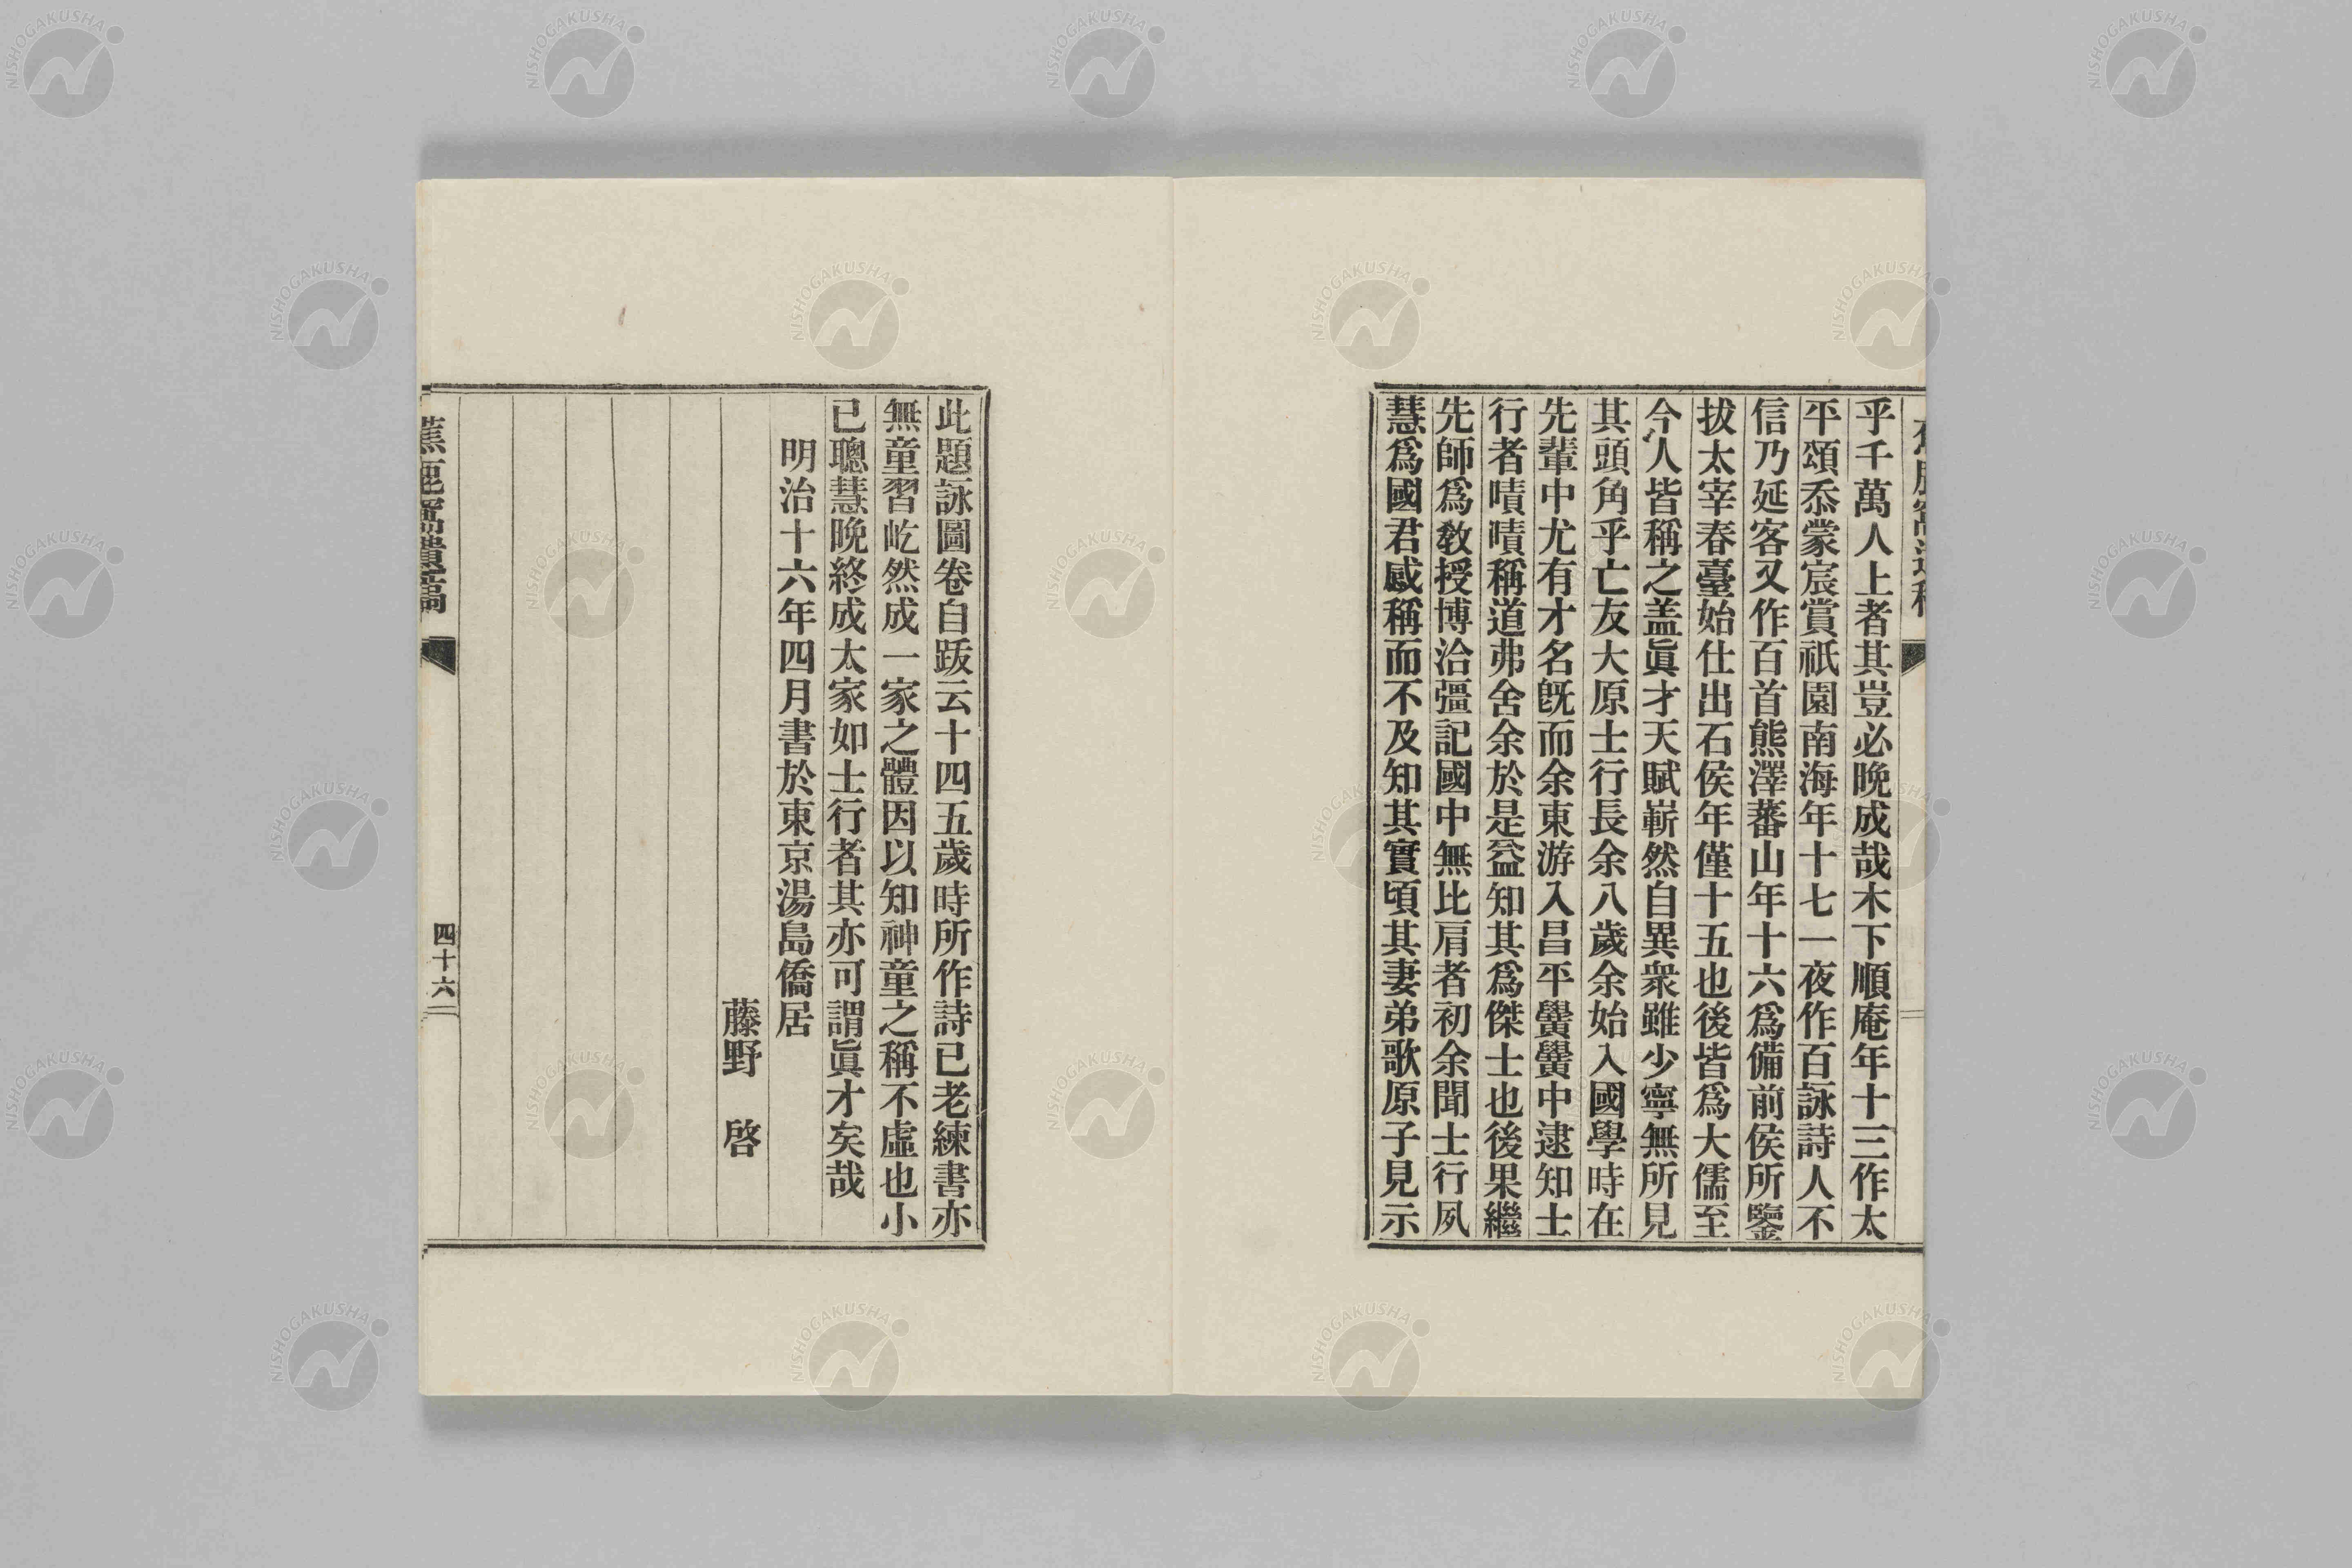 乎千萬人上者其豈必晚成哉木下順庵年十三作太
平頌忝蒙宸賞祇園南海年十七一夜作百詠詩人不
信乃延客又作百首熊澤蕃山年十六爲備前侯所鑒
拔太宰春臺始仕出石侯年僅十五也後皆爲大儒至
今人皆稱之盖眞才天賦嶄然自異衆雖少寧無所見
其頭角乎亡友大原士行長余八歲余始入國學時在
先輩中尤有才名旣而余東游入昌平黌黌中逮知士
行者嘖嘖稱道弗舍余於是益知其爲傑士也後果繼
先師爲敎授博洽彊記國中無比肩者初余聞士行夙
慧爲國君感稱而不及知其實頃其妻弟歌原子見示
此題詠圖卷自跋云十四五歲時所作詩已老練書亦
無童習屹然成一家之體因以知神童之稱不虛也小
已聰慧晚終成大家如士行者其亦可謂眞才矣哉
明治十六年四月書於東京湯島僑居
藤野 啓
蕉鹿窩遺稿
四十六
NISHOGAKUSHA